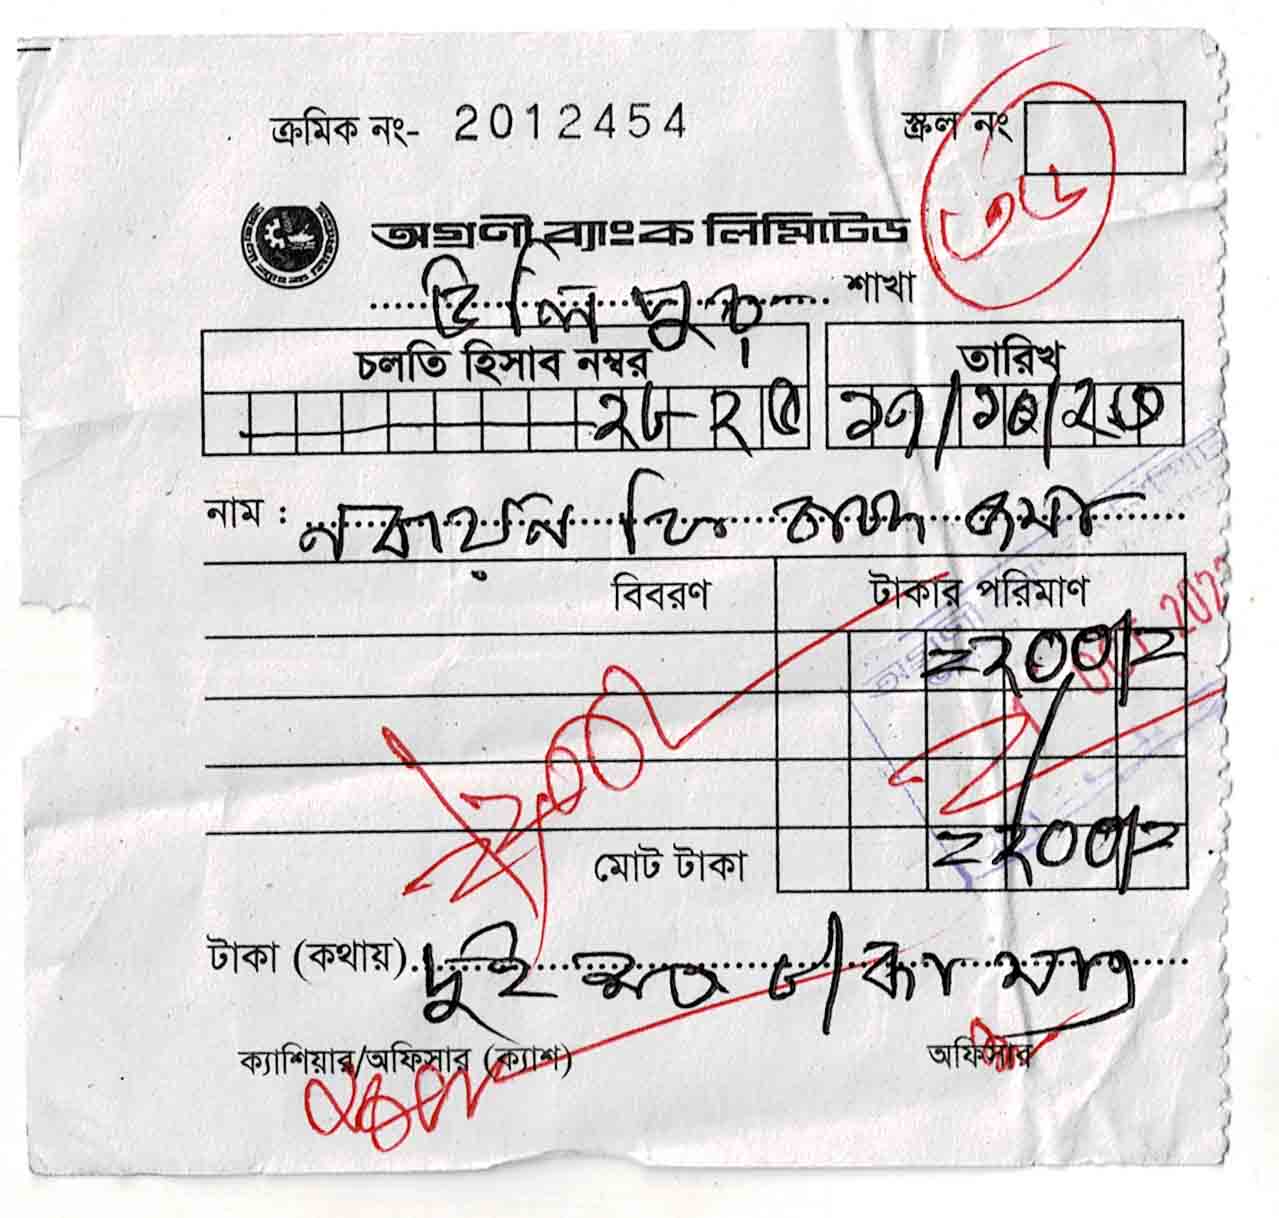 ক্রমিক নং- 2012454
স্ক্রল নং
৩৬
অগ্রণী ব্যাংক লিমিটেড
উলিপুর শাখা
চলতি হিসাব নম্বর
তারিখ
২৮২৫
১৭/১০/২৩
নাম : নবায়ন ফি বাবদ জমা
বিবরণ
টাকার পরিমাণ
=২০০/=
২০০
OCT 202
মোট টাকা
=২০০/=
টাকা (কথায়) দুই শত টাকা মাত্র
ক্যাশিয়ার/অফিসার (ক্যাশ)
অফিসার